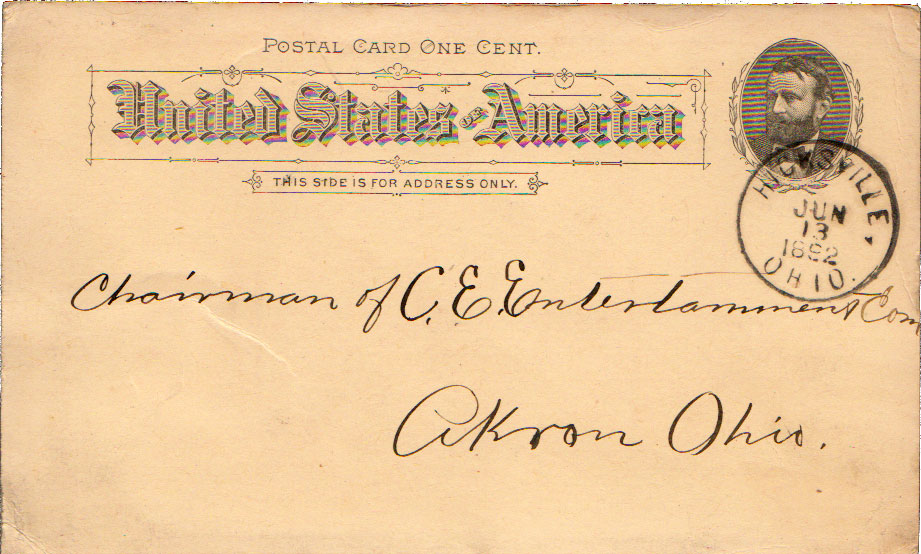 POSTAL CARD ONE CENT.
United States OF America
THIS SIDE IS FOR ADDRESS ONLY.
HICKSVILLE,
JUN
13
1892
OHIO.
Chairman of C. E. Entertainment Com
Akron Ohio.